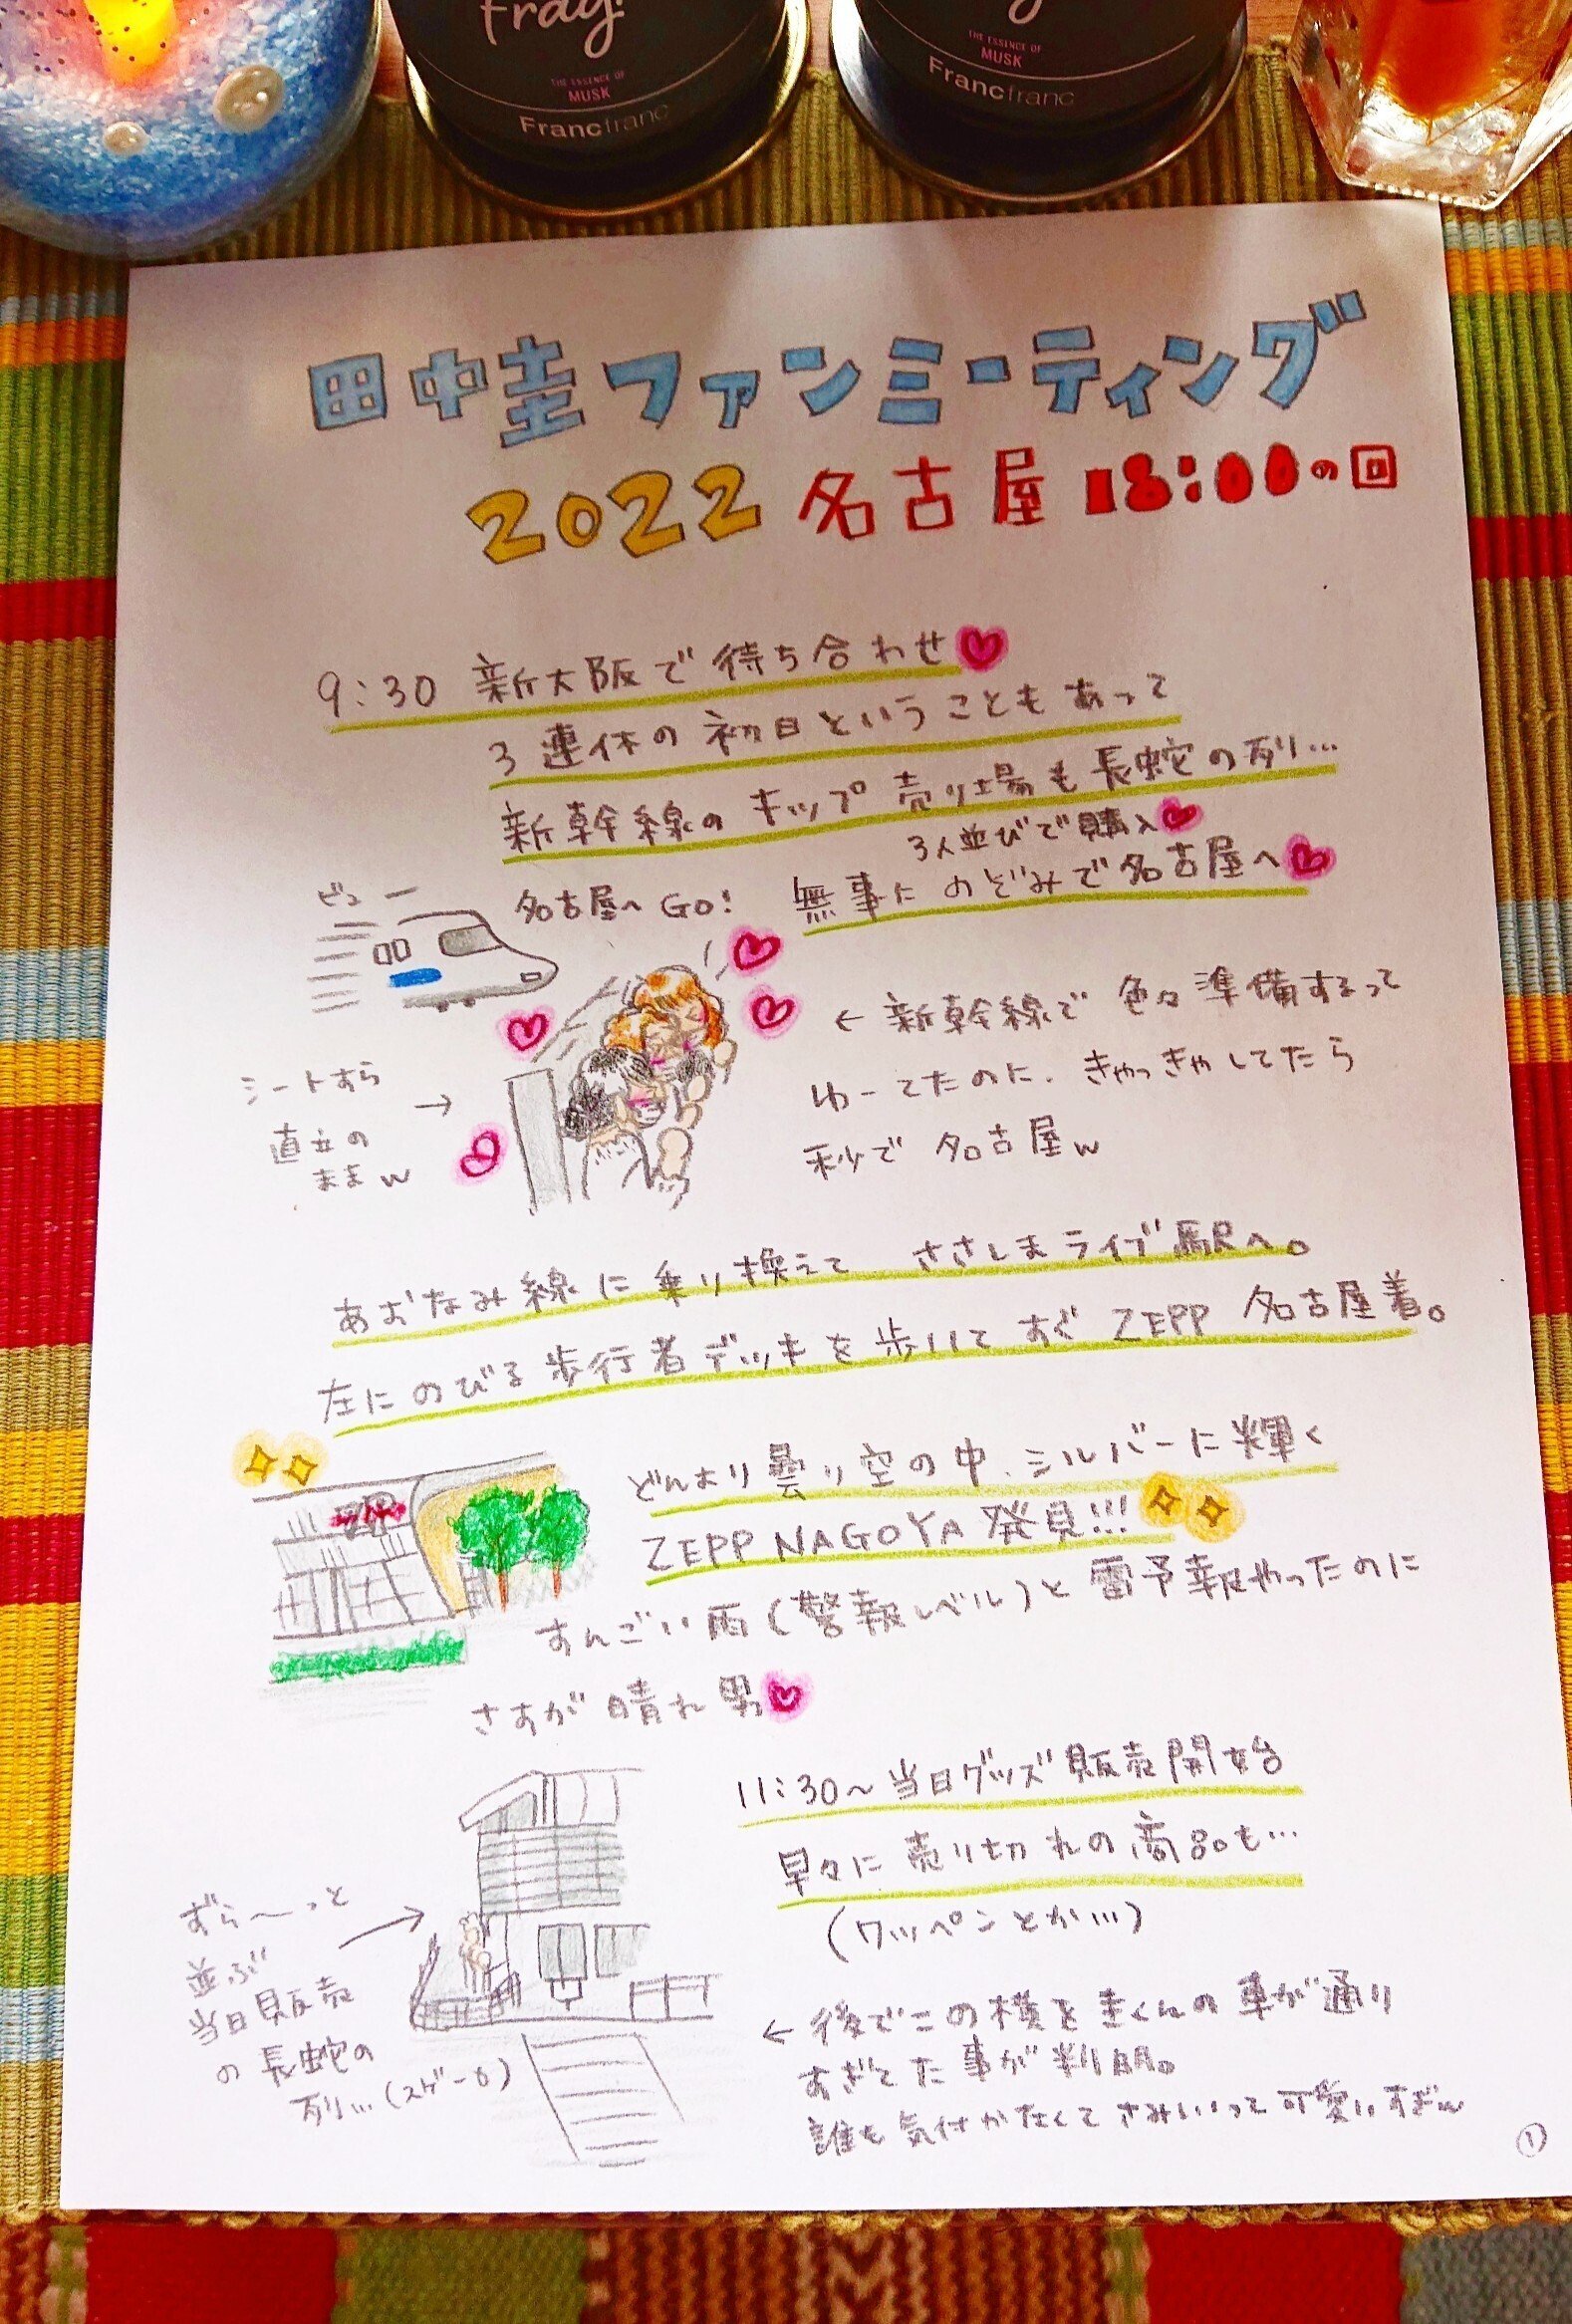 Frag.
THE ESSENCE OF
MUSK
Francfranc
THE ESSENCE OF
MUSK
Francfranc
田中圭ファンミーティング
2022 名古屋 18:00の回
9:30 新大阪で待ち合わせ
3連休の初日ということもあって
新幹線のキップ売り場も長蛇の列…
3人並びで購入
無事にのぞみで名古屋へ
ビューー
名古屋へGO!
←新幹線で色々準備するって
ゆーてたのに、きゃっきゃしてたら
秒で名古屋w
シートすら
直立の
ままw
→
あおなみ線に乗り換えて ささしまライブ駅へ。
左にのびる歩行者デッキを歩いてすぐ ZEPP 名古屋着。
どんより曇り空の中、シルバーに輝く
ZEPP NAGOYA 発見!!!
すんごい雨(警報レベル)と雷予報やったのに
さすが晴れ男
11:30〜当日グッズ販売開始
早々に売り切れの商品も…
(ワッペンとか…)
ずら〜っと
並ぶ
当日販売
の長蛇の
列…(スゲーな)
←後でこの横を圭くんの車が通り
すぎてた事が判明。
誰も気付かなくてさみしいって可愛いすぎw
①